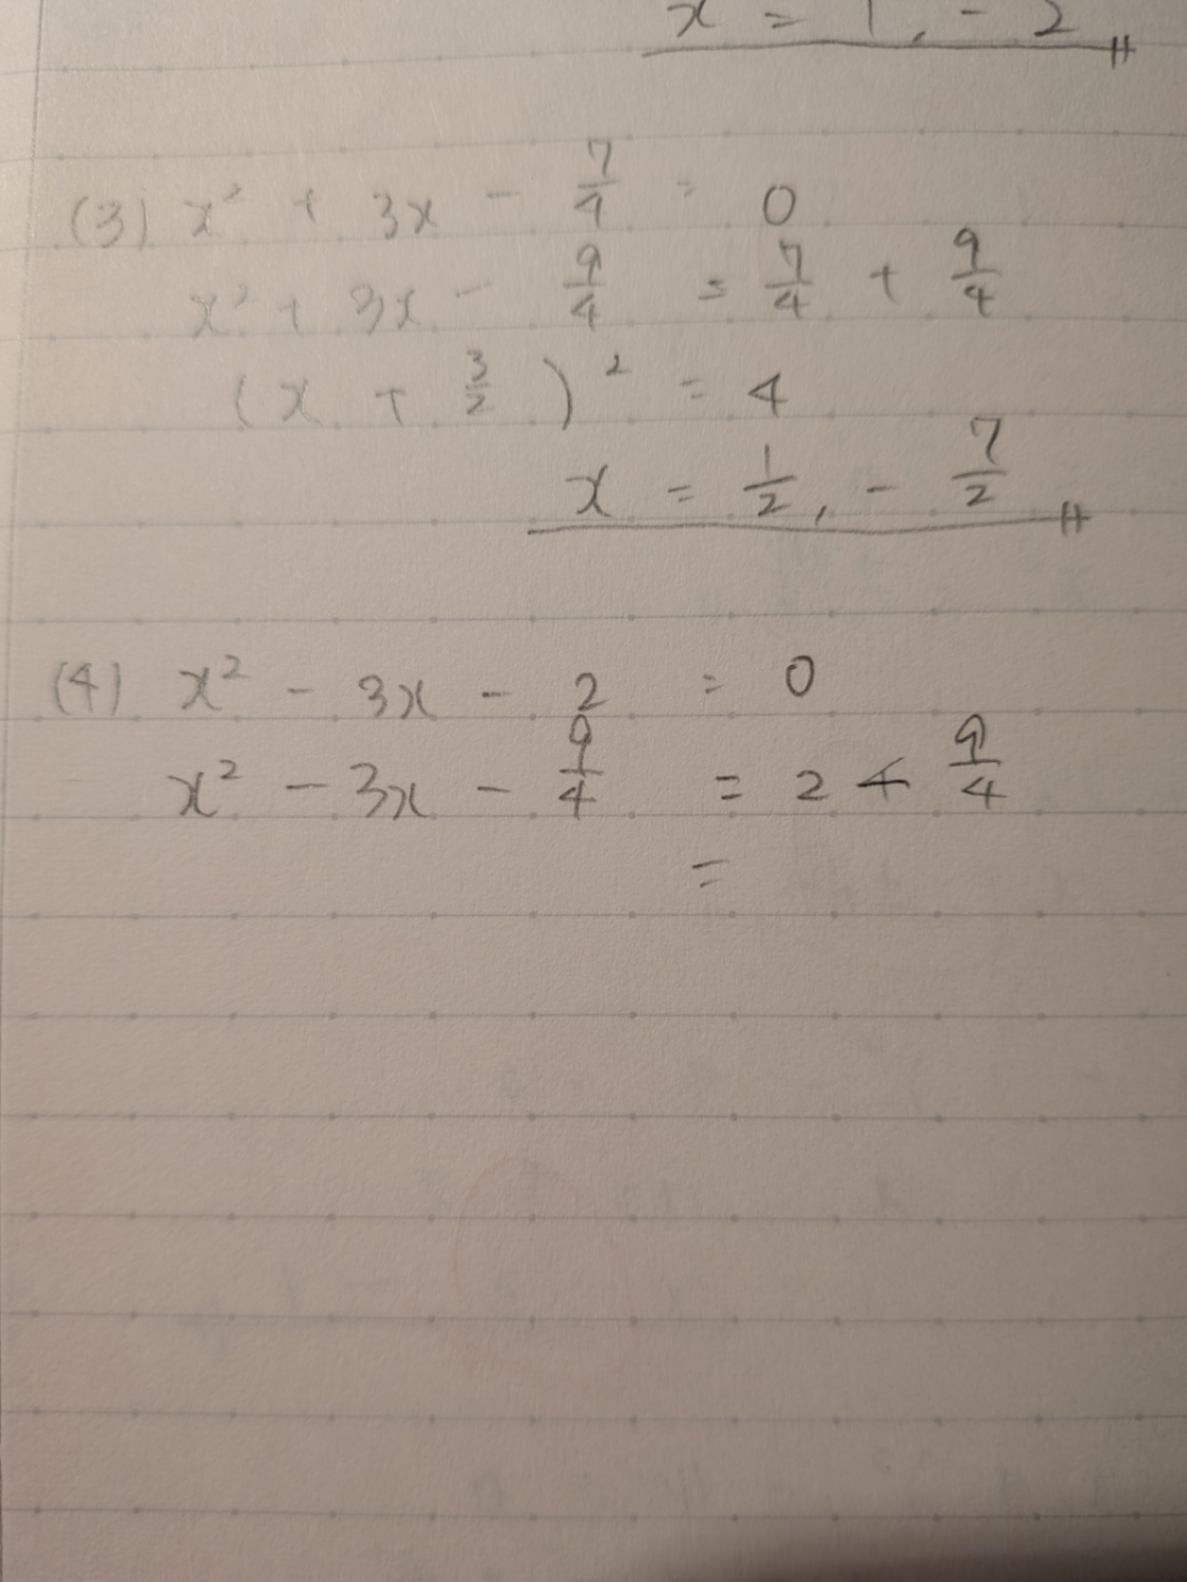 x = 1, -2
(3) x² + 3x - 7/4 = 0
x² + 3x - 9/4 = 7/4 + 9/4
(x + 3/2)² = 4
x = 1/2, - 7/2
(4) x² - 3x - 2 = 0
x² - 3x - 9/4 = 2 + 9/4
=